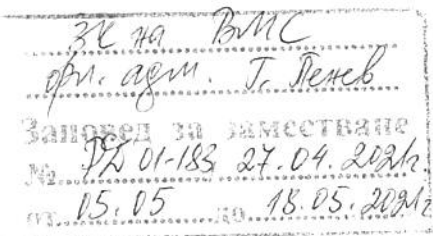 ЗК на ВМС
фл. адм. Г. Пенев
Заповед за заместване
№ РД 01-183 27.04.2021г.
от 05.05 до 18.05.2021г.